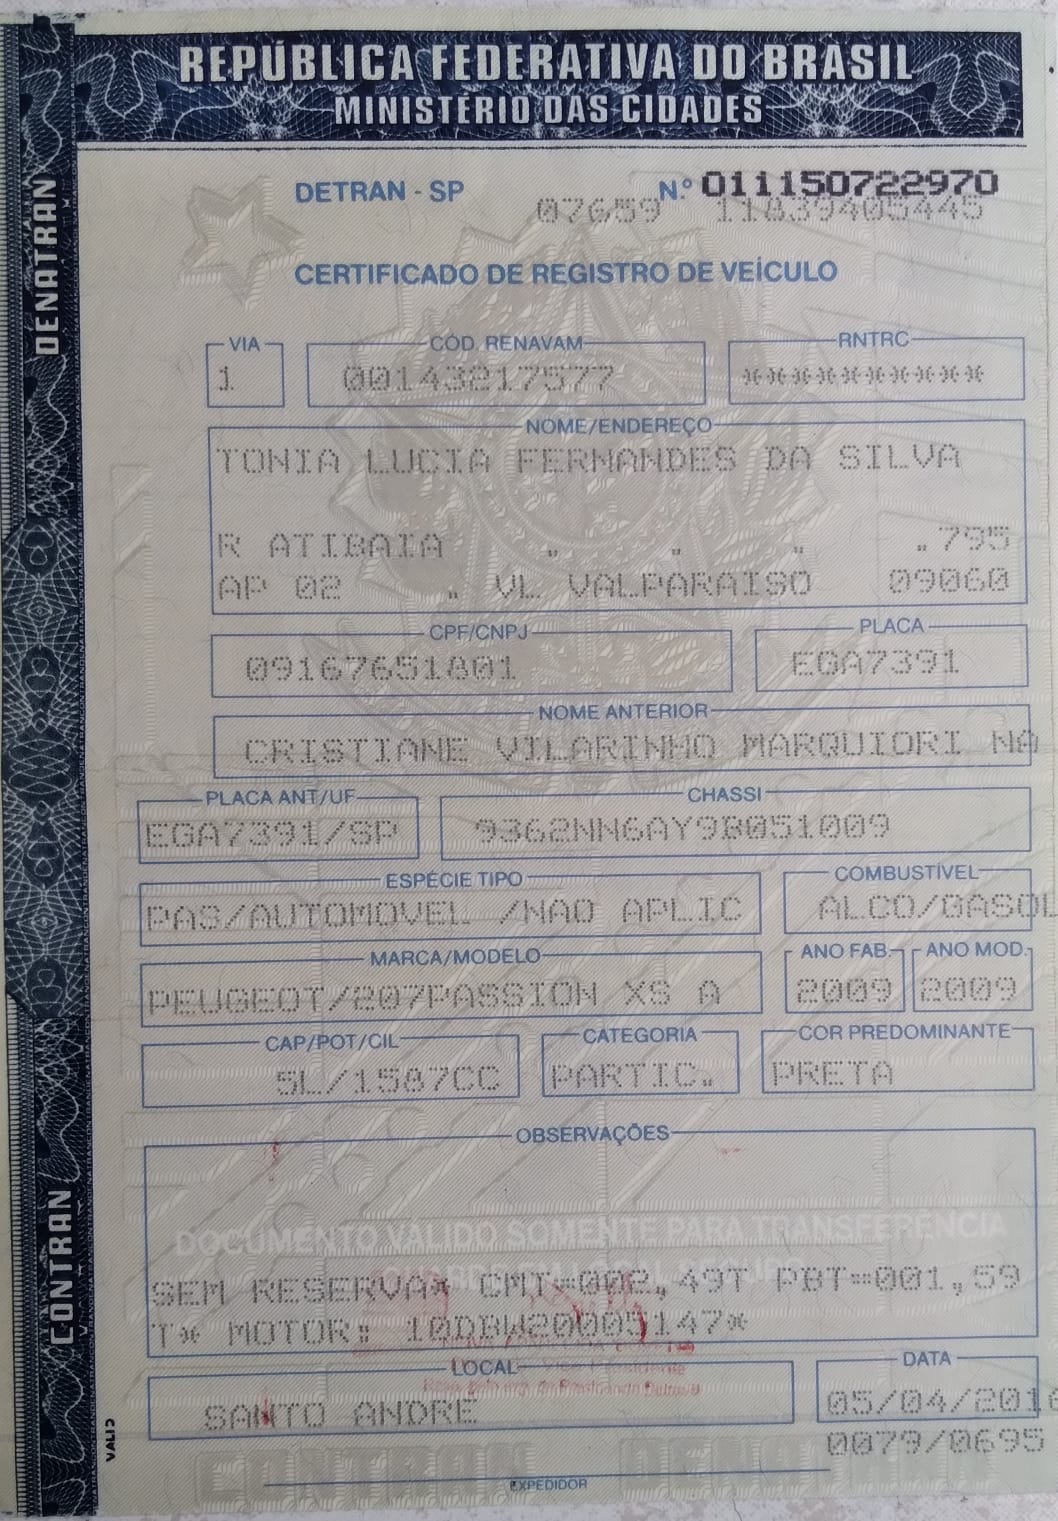 REPÚBLICA FEDERATIVA DO BRASIL
MINISTÉRIO DAS CIDADES
DENATRAN
DETRAN - SP
N.º 011150722970
07659 11839405445
CERTIFICADO DE REGISTRO DE VEÍCULO
VIA
CÓD. RENAVAM
RNTRC
1
00143217577
**********
NOME/ENDEREÇO
TONIA LUCIA FERNANDES DA SILVA
R ATIBAIA . . . .795
AP 02 . VL VALPARAISO 09060
CPF/CNPJ
PLACA
09167651801
EGA7391
NOME ANTERIOR
CRISTIANE VILARINHO MARQUIORI NA
PLACA ANT/UF
CHASSI
EGA7391/SP
9362NN6AY9B051009
ESPÉCIE TIPO
COMBUSTÍVEL
PAS/AUTOMOVEL /NAO APLIC
ALCO/GASOL
MARCA/MODELO
ANO FAB.
ANO MOD.
PEUGEOT/207PASSION XS A
2009
2009
CAP/POT/CIL
CATEGORIA
COR PREDOMINANTE
5L/1587CC
PARTIC.
PRETA
OBSERVAÇÕES
DOCUMENTO VÁLIDO SOMENTE PARA TRANSFERÊNCIA
SEM RESERVA* CMT=002,49T PBT=001,59
T* MOTOR: 10DBW20005147*
CONTRAN
LOCAL
DATA
SANTO ANDRE
05/04/2016
0079/0695
VALID
EXPEDIDOR
CONTRAN DENATRAN